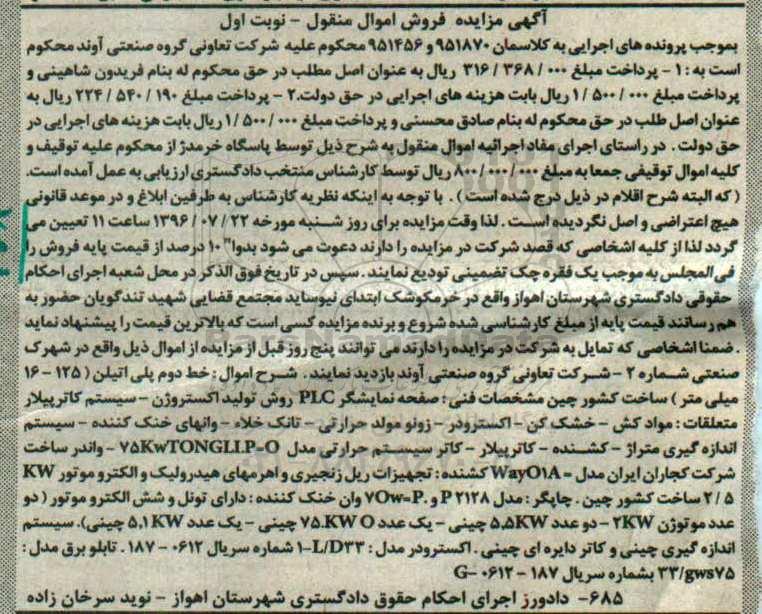 آگهی مزایده فروش اموال منقول - نوبت اول
بموجب پرونده های اجرایی به کلاسمان ۹۵۱۸۷۰ و ۹۵۱۴۵۶ محکوم علیه شرکت تعاونی گروه صنعتی آوند محکوم
است به : ۱ - پرداخت مبلغ ۰۰۰ / ۳۶۸ / ۳۱۶ ریال به عنوان اصل مطلب در حق محکوم له بنام فریدون شاهینی و
پرداخت مبلغ ۰۰۰ / ۵۰۰ / ۱ ریال بابت هزینه های اجرایی در حق دولت.۲ - پرداخت مبلغ ۱۹۰ / ۵۴۰ / ۲۲۴ ریال به
عنوان اصل طلب در حق محکوم له بنام صادق محسنی و پرداخت مبلغ ۰۰۰ / ۵۰۰ / ۱ ریال بابت هزینه های اجرایی در
حق دولت . در راستای اجرای مفاد اجرائیه اموال منقول به شرح ذیل توسط پاسگاه خرمدژ از محکوم علیه توقیف و
کلیه اموال توقیفی جمعا به مبلغ ۰۰۰ / ۰۰۰ / ۸۰۰ ریال توسط کارشناس منتخب دادگستری ارزیابی به عمل آمده است.
( که البته شرح اقلام در ذیل درج شده است ) . با توجه به اینکه نظریه کارشناس به طرفین ابلاغ و در موعد قانونی
هیچ اعتراضی و اصل نگردیده است . لذا وقت مزایده برای روز شنبه مورخه ۲۲ / ۰۷ / ۱۳۹۶ ساعت ۱۱ تعیین می
گردد لذا از کلیه اشخاصی که قصد شرکت در مزایده را دارند دعوت می شود بدوا" ۱۰ درصد از قیمت پایه فروش را
فی المجلس به موجب یک فقره چک تضمینی تودیع نمایند . سپس در تاریخ فوق الذکر در محل شعبه اجرای احکام
حقوقی دادگستری شهرستان اهواز واقع در خرمکوشک ابتدای نیوساید مجتمع قضایی شهید تندگویان حضور به
هم رسانند قیمت پایه از مبلغ کارشناسی شده شروع و برنده مزایده کسی است که بالاترین قیمت را پیشنهاد نماید
. ضمنا اشخاصی که تمایل به شرکت در مزایده را دارند می توانند پنج روز قبل از مزایده از اموال ذیل واقع در شهرک
صنعتی شماره ۲ - شرکت تعاونی گروه صنعتی آوند بازدید نمایند . شرح اموال : خط دوم پلی اتیلن ( ۱۲۵ - ۱۶
میلی متر ) ساخت کشور چین مشخصات فنی : صفحه نمایشگر PLC روش تولید اکستروژن - سیستم کاترپیلار
متعلقات : مواد کش - خشک کن - اکسترودر - زونو مولد حرارتی - تانک خلاء - وانهای خنک کننده - سیستم
اندازه گیری متراژ - کشنده - کاترپیلار - کاتر سیستم حرارتی مدل ۷۵KwTONGLI.P=O - واندر ساخت
شرکت کجاران ایران مدل = WayO۱A کشنده : تجهیزات ریل زنجیری و اهرمهای هیدرولیک و الکترو موتور KW
۲ / ۵ ساخت کشور چین . چاپگر : مدل P ۲۱۲۸ و .۷Ow=P وان خنک کننده : دارای تونل و شش الکترو موتور ( دو
عدد موتوژن ۲KW - دو عدد ۵,۵KW چینی - یک عدد ۷۵.KW O چینی - یک عدد ۵,۱KW چینی). سیستم
اندازه گیری چینی و کاتر دایره ای چینی . اکسترودر مدل : ۱-L/D۳۳ شماره سریال ۰۶۱۲ - ۱۸۷ . تابلو برق مدل :
۳۳/gws۷۵ بشماره سریال ۱۸۷ - ۰۶۱۲ -G
۶۸۵- دادورز اجرای احکام حقوق دادگستری شهرستان اهواز - نوید سرخان زاده